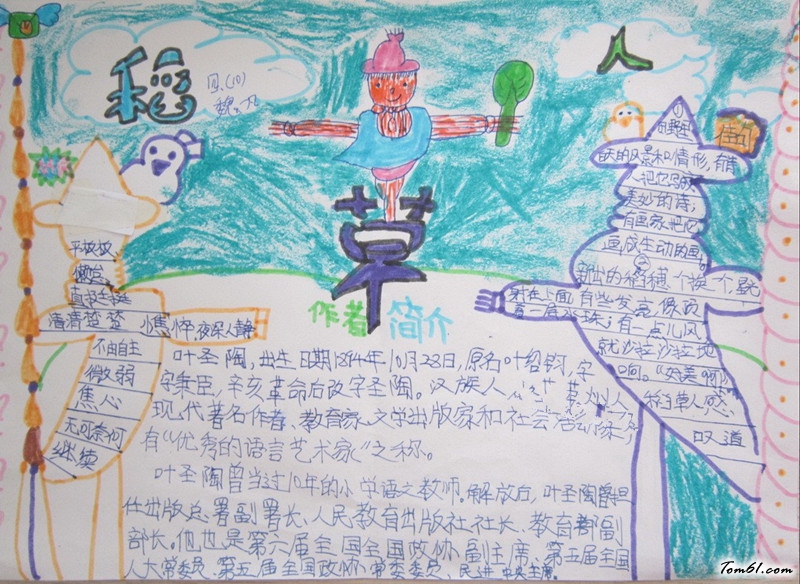 稻
草
人
四.(10)
佳句
作者
简介
平坡坡
清清楚楚
憔悴 夜深人静
不由自主
微弱
焦心
无可奈何
继续
白天的风景和情形,有诗
人把它写成
美妙的诗,
有画家把它
画成生动的画
新出的稻穗一个挨一个,
射在上面有些发亮,像顶
着一层水珠;有一点儿风,
就沙拉沙拉地
响。《好美啊》
稻草人感
叹道
叶圣陶,出生日期1894年10月28日,原名叶绍钧,字
秉臣,辛亥革命后改字圣陶。汉族人
现代著名作者、教育家、文学出版家和社会活动家,
有“优秀的语言艺术家”之称。
叶圣陶曾当过10年的小学语文教师。解放后,叶圣陶曾担
任出版总署副署长、人民教育出版社社长、教育部副
部长。他也是第六届全国全国政协副主席、第五届全国
人大常委员、第五届全国政协常委委员,民进中央主席。
Tom61.com